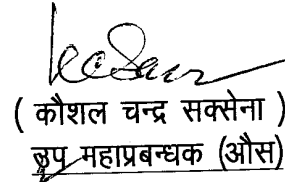 ( कौशल चन्द्र सक्सेना )
उप महाप्रबन्धक (औस)